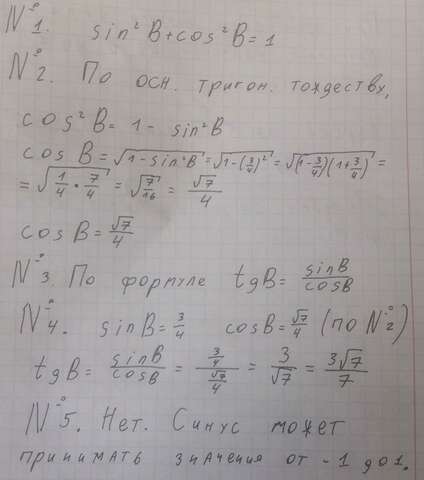 №1. sin²B+cos²B=1
№2. По осн. тригон. тождеству,
cos²B= 1 - sin²B
cos B = √(1-sin²B) = √(1-(3/4)²) = √((1-3/4)(1+3/4)) =
= √(1/4 · 7/4) = √(7/16) = √7/4
cos B = √7/4
№3. По формуле tgB = sinB/cosB
№4. sin B = 3/4 cosB = √7/4 (по №2)
tgB = sinB/cosB = (3/4)/(√7/4) = 3/√7 = 3√7/7
№5. Нет. Синус может
принимать значения от -1 до 1.